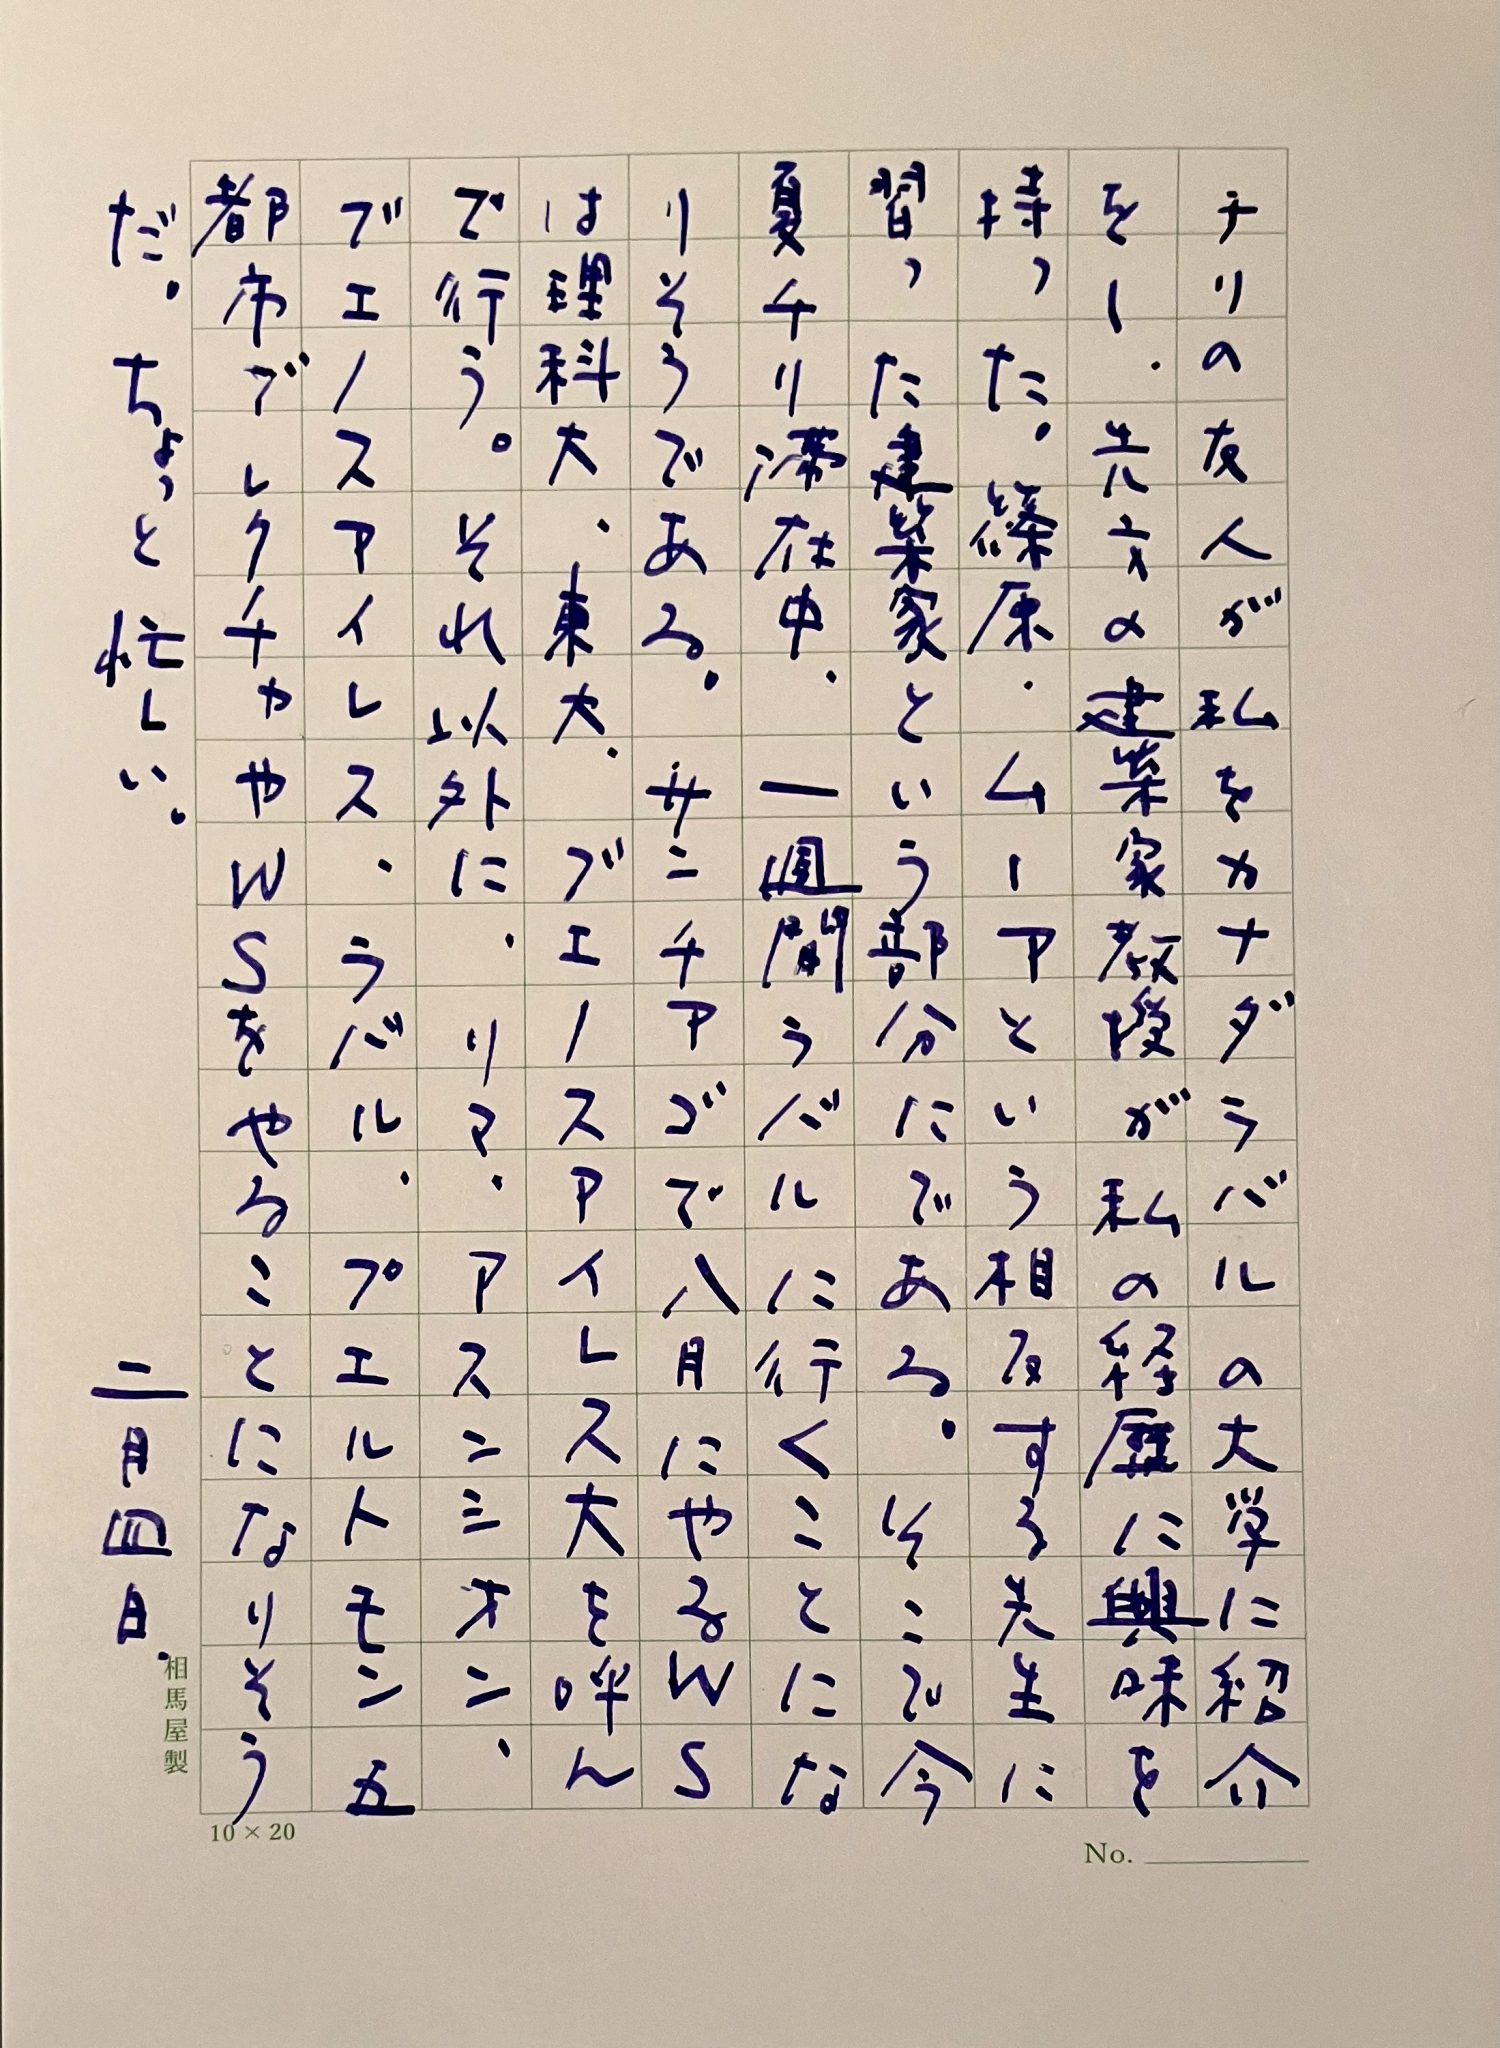 チリの友人が私をカナダラバルの大学に紹介
をし、先方の建築家教授が私の経歴に興味を
持った。篠原、ムーアという相反する先生に
習った建築家という部分にである。そこで今
夏チリ滞在中、一週間ラバルに行くことにな
りそうである。サンチアゴで八月にやるWS
は理科大、東大、ブエノスアイレス大を呼ん
で行う。それ以外に、リマ、アスンシオン、
ブエノスアイレス、ラバル、プエルトモン五
都市でレクチャやWSをやることになりそう
だ。ちょっと忙しい。 二月四日.
相馬屋製
10 × 20
No.